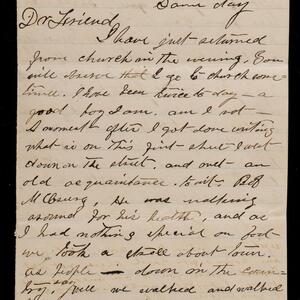 Same day
Dr Friend
I have just returned
from church in the evening. You
will know that I go to church some
times. I have been twice to-day — a
good boy I am. am I not —
A moment after I got done writing
what is on this first sheet I went
down on the street. and met — an
old acquaintance. to wit. Bob
He was walking
around for his health, and as
I had nothing special on foot
we, took a stroll about town.
as people say — down in the coun-
try, well we walked and walked